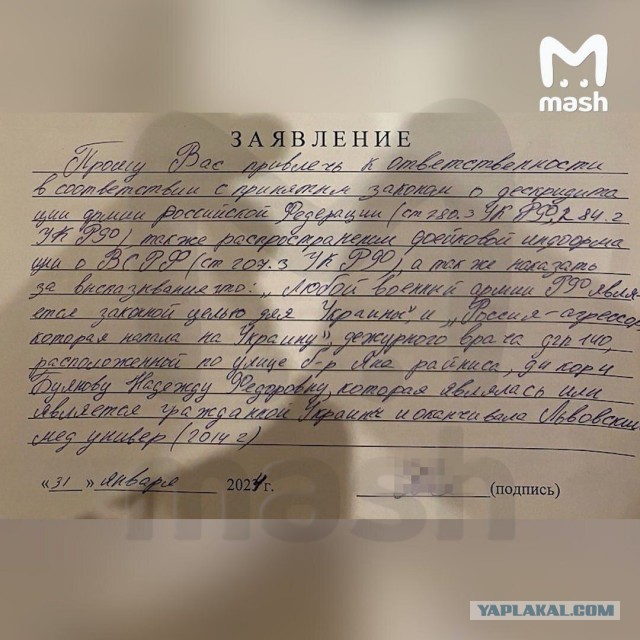 mash
ЗАЯВЛЕНИЕ
Прошу Вас привлечь к ответственности
в соответствии с принятым законам о дескридита
ции армии российской Федерации (ст 280.3 УК РФ, 284.2
УК РФ), также распространении фейковой информа
ции о ВС РФ (ст 207.3 УК РФ), а также наказать
за высказывание что: „Любой военный армии РФ явля-
ется законной целью для Украины", и „Россия-агрессор,
которая напала на Украину", дежурного врача дгп 140,
расположенной по улице б-р Яна райниса,
Буянову Надежду Федоровну, которая являлась или
является гражданкой Украины и оканчивала Львовский
мед универ (2014 г)
«31» января 2024 г. (подпись)
mash
YAPLAKAL.COM